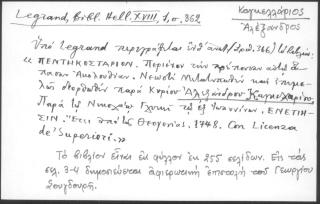 Legrand, Bibl. Hell. XVIII, 1, σ. 362
Καγκελλάριος
Ἀλέξανδρος
Ὑπὸ Legrand περιγράφεται ὑπ' ἀριθ.
« ΠΕΝΤΗΚΟΣΤΑΡΙΟΝ. Περιέχον τὴν πρέπουσαν αὐτῷ ἅ-
πασαν Ἀκολουθίαν. Νεωστὶ Μετατυπωθὲν καὶ ἐπιμε-
λῶς διορθωθὲν παρὰ Κυρίου Ἀλεξάνδρου Καγκελλαρίου.
Παρὰ Νικολάῳ Γλυκεῖ τῷ ἐξ Ἰωαννίνων. ΕΝΕΤΙΗ-
ΣΙΝ. Ἔτει ἀπὸ τῆς Θεογονίας. 1748. Con Licenza
de' Superiori.»
Τὸ βιβλίον εἶναι εἰς φύλλον ἐκ 255 σελίδων. Εἰς τὰς
σελ. 3-4 δημοσιεύεται ἀφιερωτικὴ ἐπιστολὴ τοῦ Γεωργίου